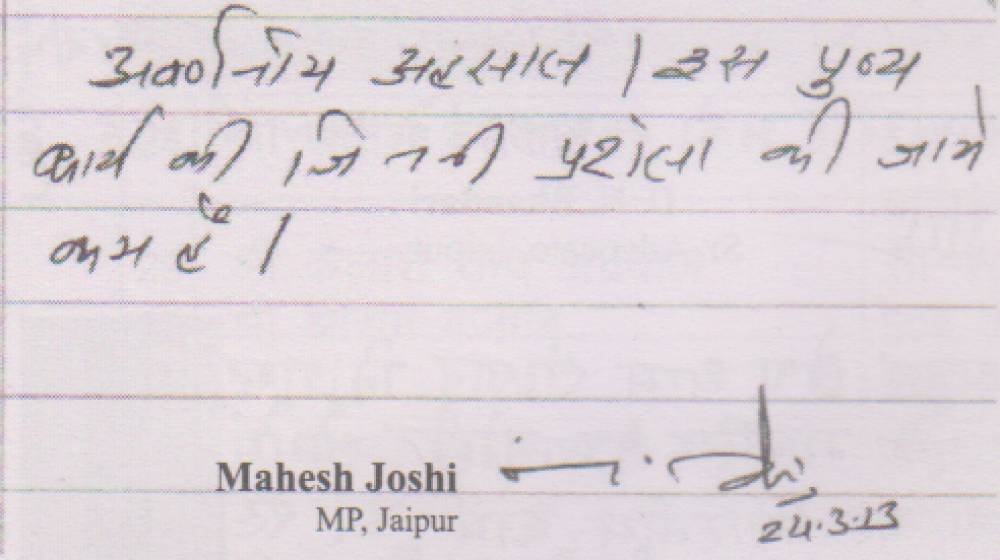 अवर्णनीय अहसास । इस पुण्य
कार्य की जितनी प्रशंसा की जाये
कम है ।
Mahesh Joshi
MP, Jaipur
24.3.13